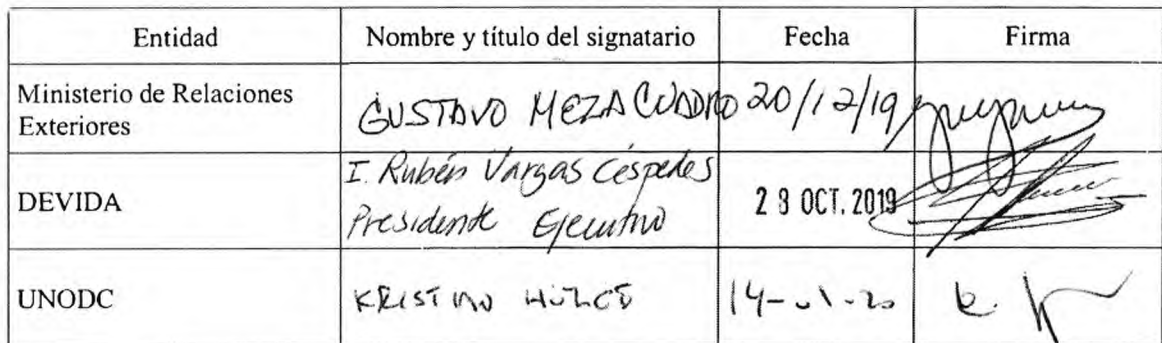 Entidad Nombre y título del signatario Fecha Firma
Ministerio de Relaciones
Exteriores
GUSTAVO MEZA CUADRO 20/12/19
DEVIDA
I. Rubén Vargas Céspedes
Presidente Ejecutivo
OCT. 2019
UNODC
14-01-20